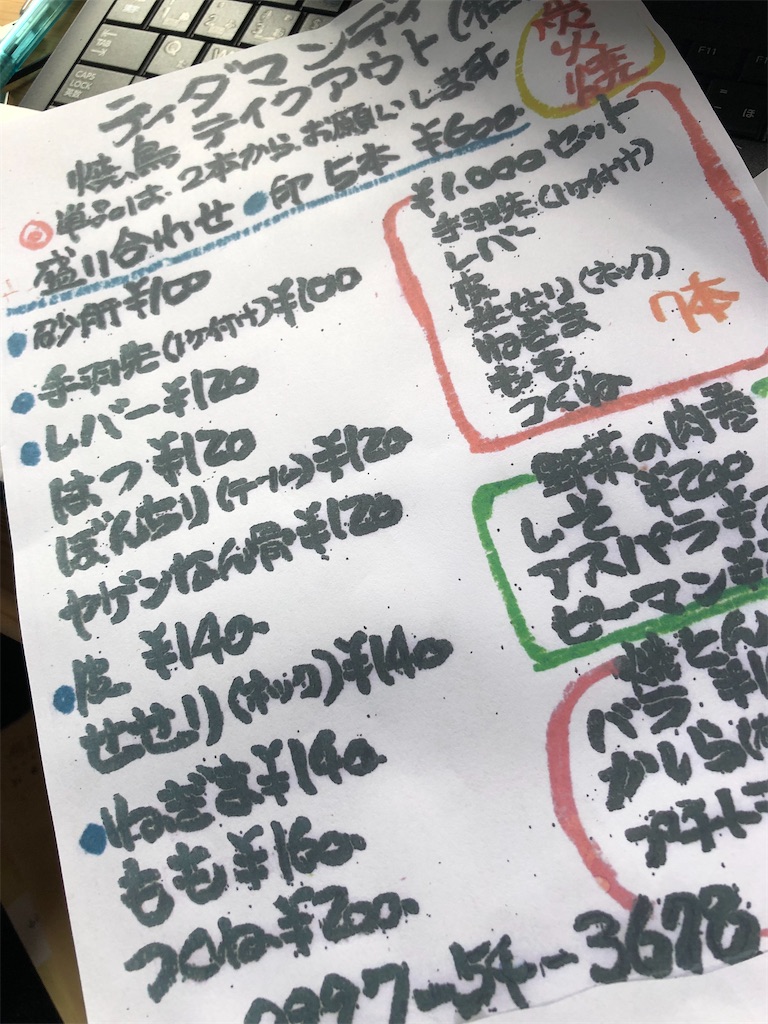 ティダマンディ
炭火焼
焼鳥 テイクアウト(
◎単品は、2本からお願いします。
盛り合わせ ●印 5本 ¥600
●砂肝¥100
●手羽先(1ケ付け)¥100
●レバー¥120
はつ ¥120
ぼんちり(テール)¥120
ヤゲンなん骨¥120
●皮 ¥140
せせり(ネック)¥140
●ねぎま¥140
もも¥160
つくね¥200
¥1,000セット
手羽先(1ケ付け)
レバー
皮
せせり(ネック)
ねぎま
もも
つくね
7本
野菜の肉巻
しそ ¥200
アスパラ¥
ピーマン¥
焼とん
バラ ¥1
かしら(
プチト
0997-54-3678
CAPS LOCK
英数
F11
ほ